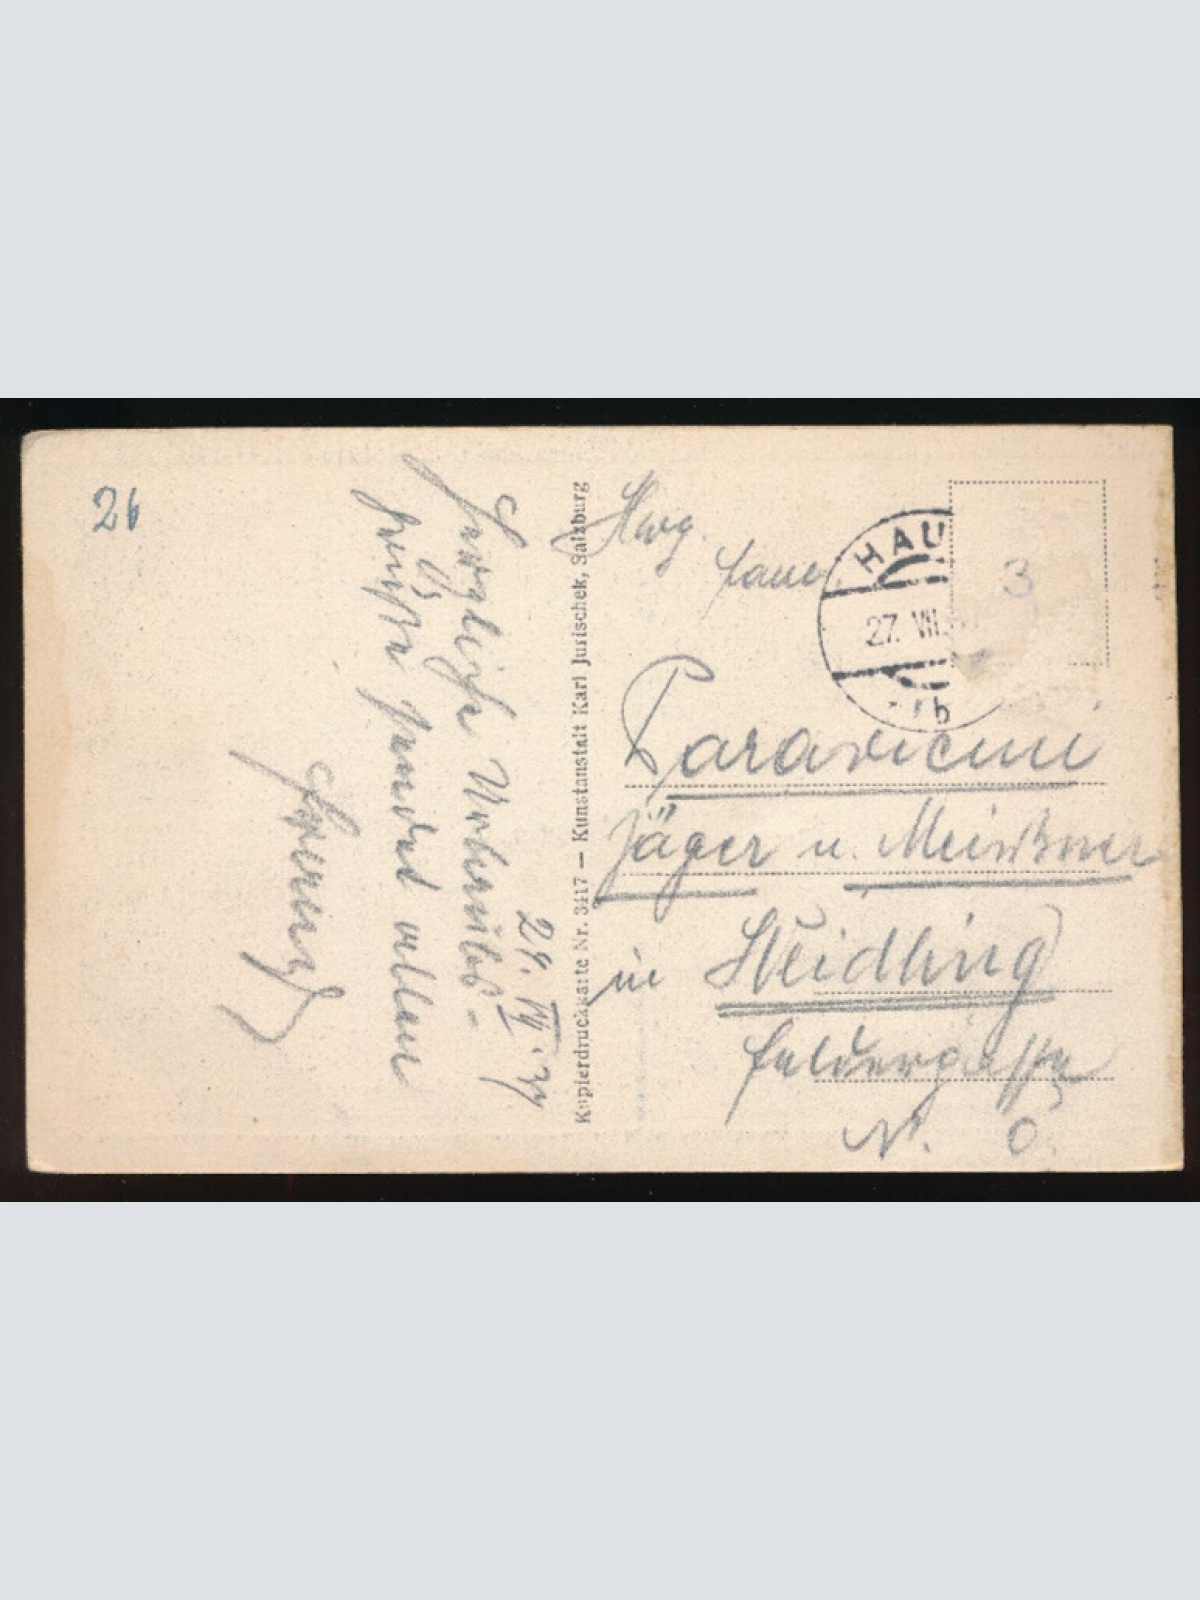 26
Herzliche Urlaubs-
grüße sendet allen
24. VII. 37
Kupierdruckkarte Nr. 3417 — Kunstanstalt Karl Jurischek, Salzburg
HAU
27. VII.
1b
3
Paravicini
Jäger u. Meissner
in Weidling
Feldergasse
N. Ö.